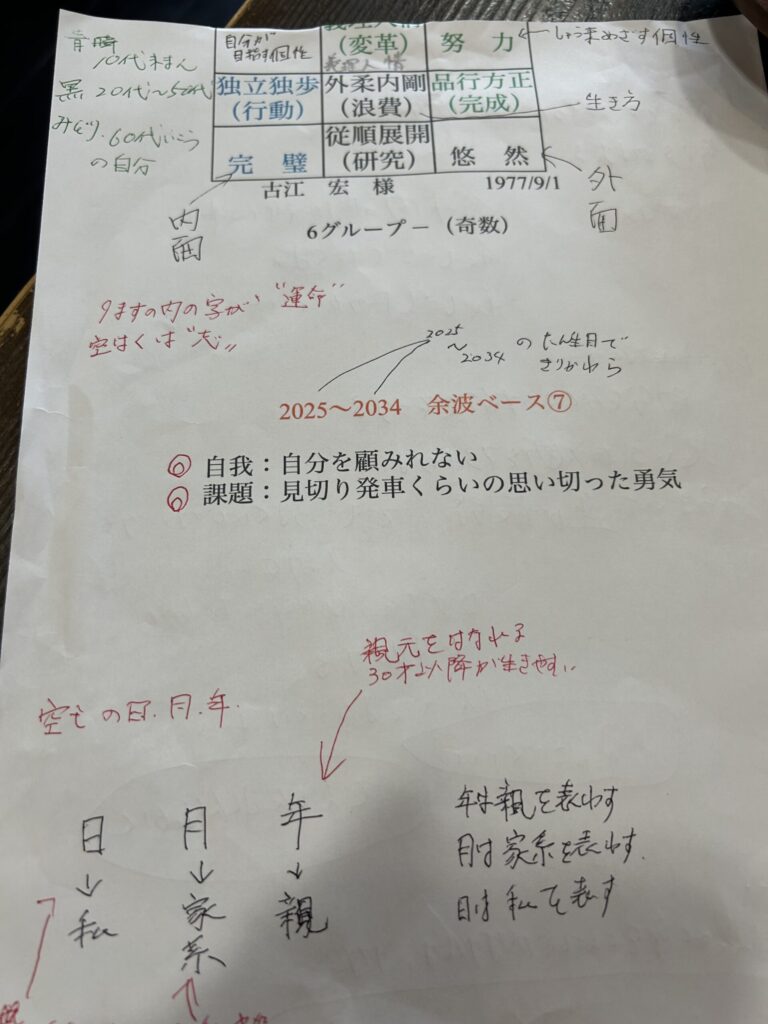 青 時
10代まえ
黒 20代〜50代
みどり. 60代いこう
の自分
自分が
目指す個性
(変革)
義理人情
努 力
しょう来めざす個性
独立独歩
(行動)
外柔内剛
(浪費)
品行方正
(完成)
生き方
完 璧
従順展開
(研究)
悠 然
古江 宏 様
1977/9/1
内面
外面
6グループー(奇数)
9ますの内の字が "運命"
空はくは "志"
2025
〜
2034 のたん生日で
きりかわる
2025〜2034 余波ベース⑦
◎ 自我:自分を顧みれない
◎ 課題:見切り発車くらいの思い切った勇気
親元をはなれる
30才以降が生きやすい
の日.月.年.
日
↓
私
月
↓
家系
年
↓
親
年は親を表わす
月は家系を表わす.
日は私を表す